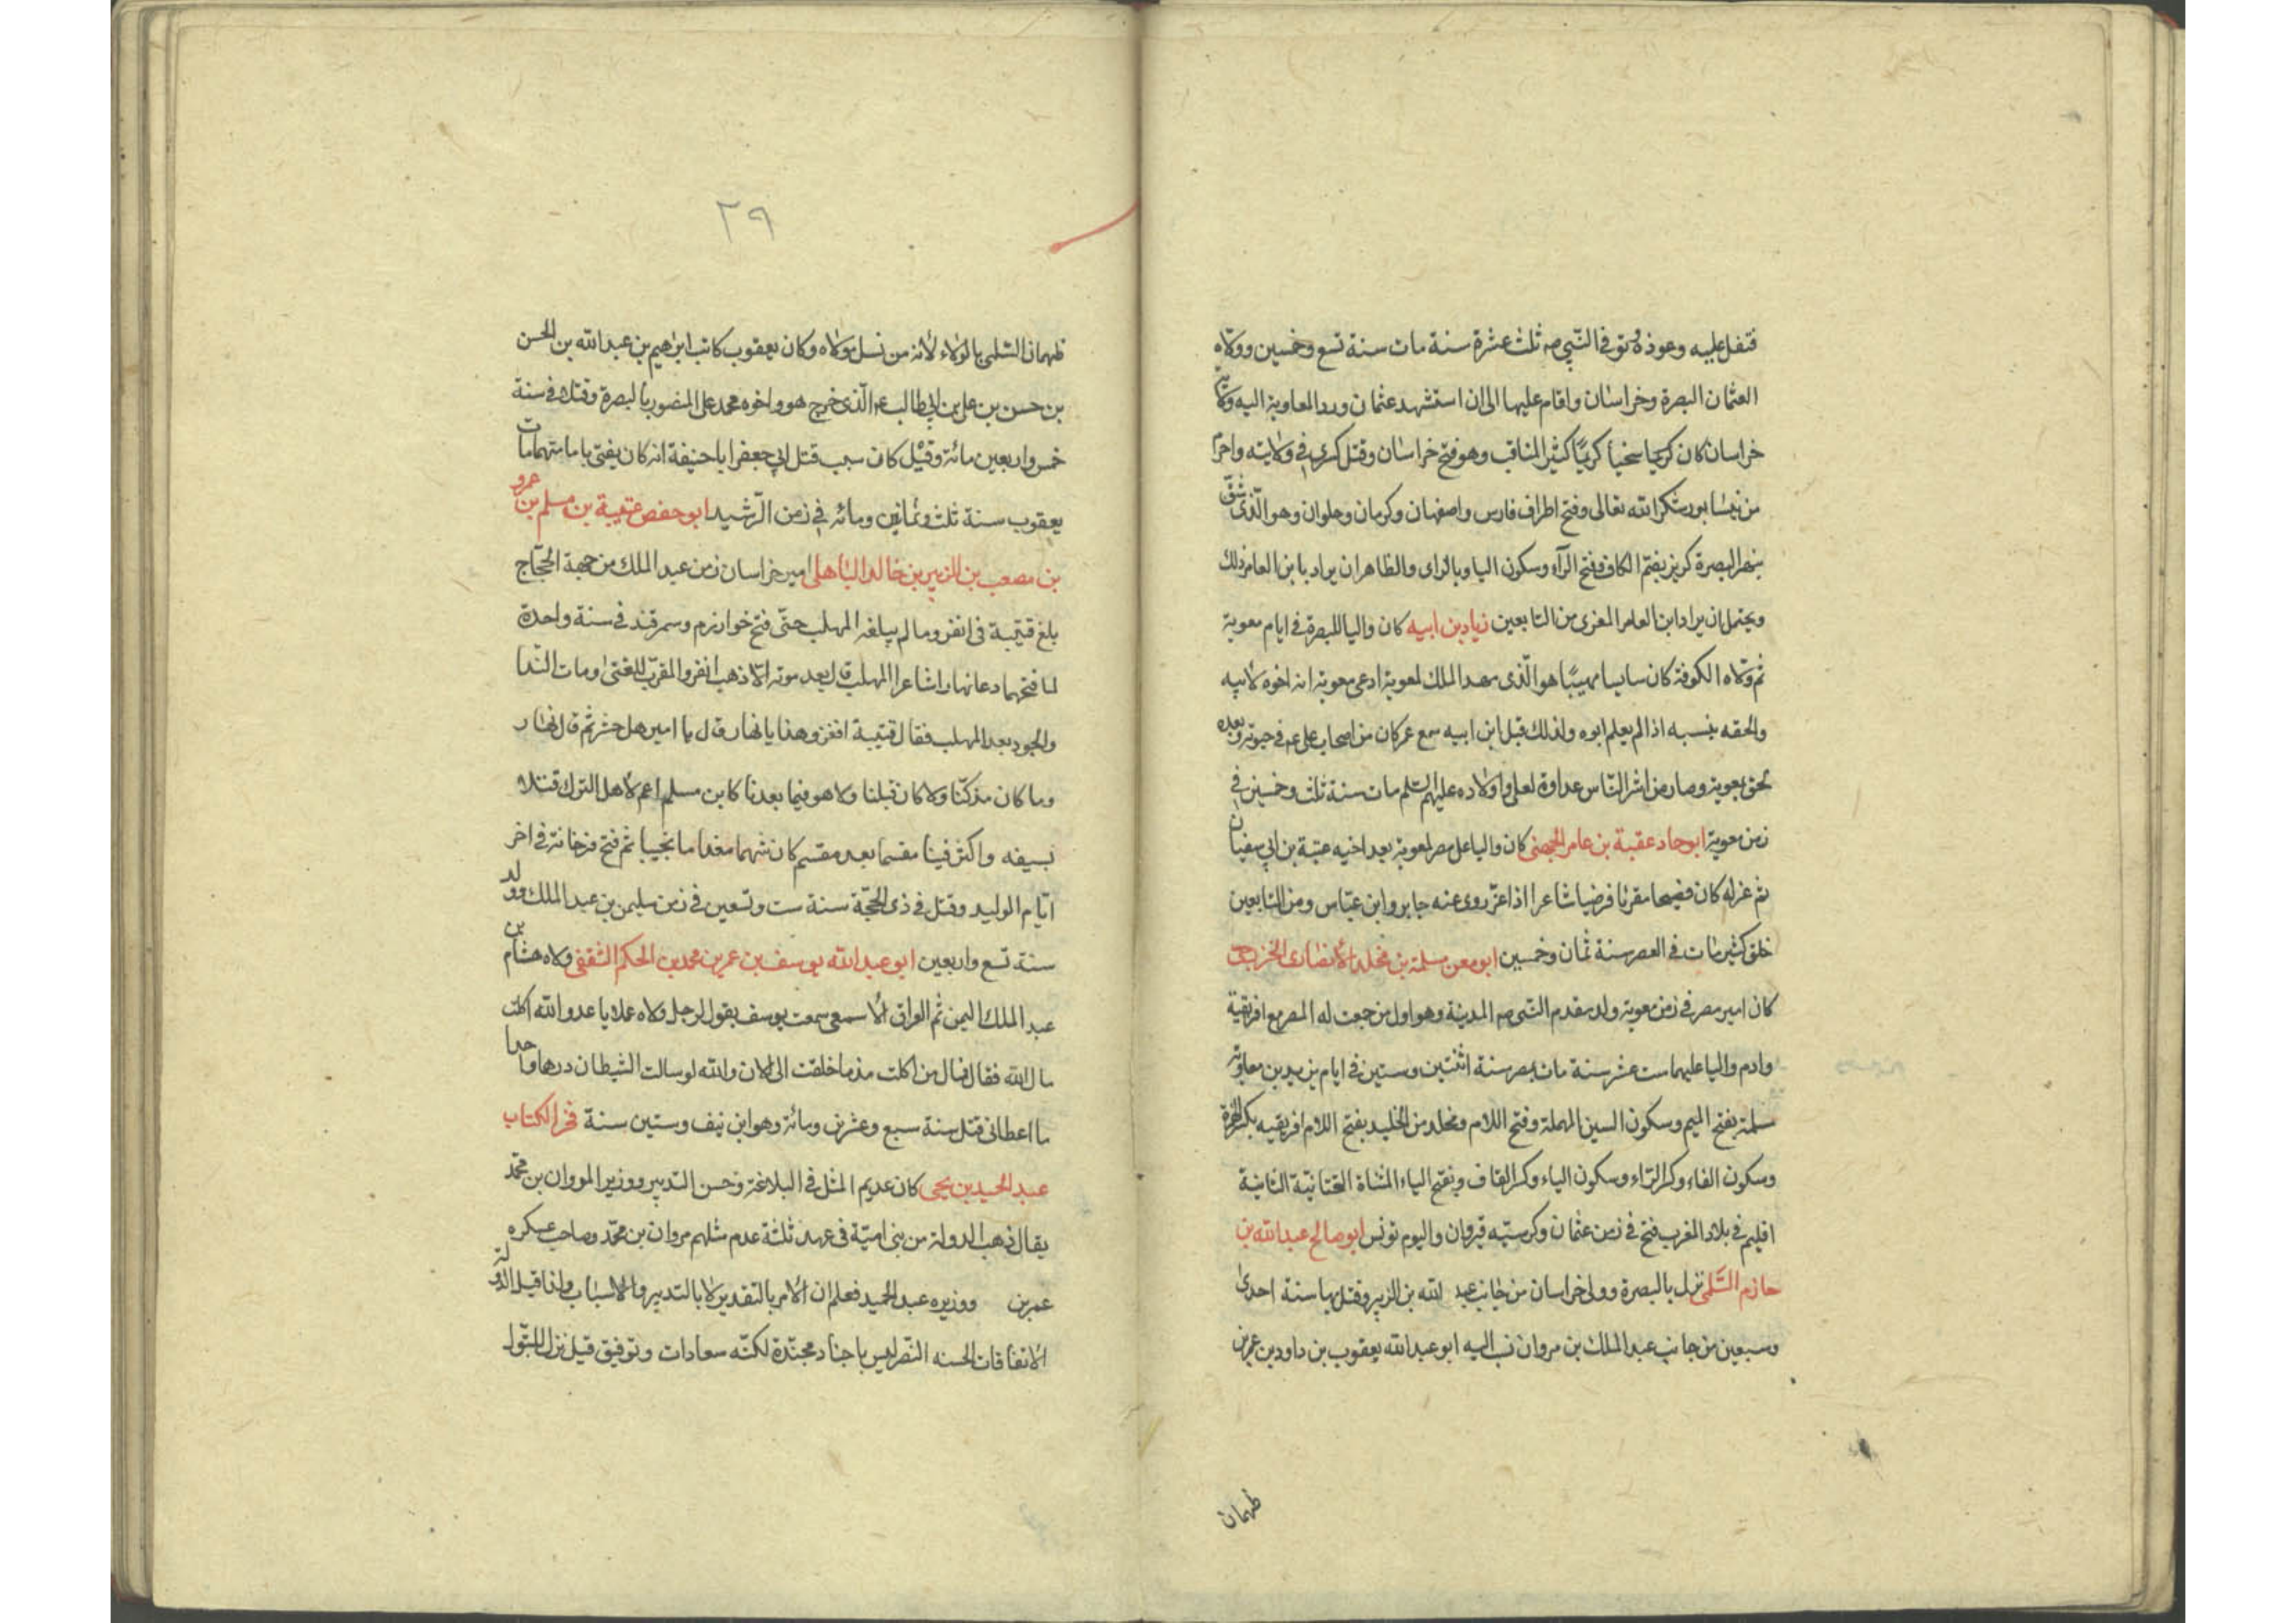 فتفل عليه وعوذه وتوفى النبي صم ثلث عشرة سنة مات سنة تسع وخمسين وولاه
العثمان البصرة وخراسان واقام عليها الى ان استشهد عثمان ورد المعاوية اليه ولاية
خراسان كان كريما سخيا كريما كثير المناقب وهو فتح خراسان وقتل كسرى في ولايته واحرم
من نيسابور شكرا لله تعالى وفتح اطراف فارس واصفهان وكرمان وحلوان وهو الذى شق
نهر البصرة كريز بضم الكاف وفتح الرآء وسكون اليا وبالزاى والظاهر ان يراد بابن العامر ذلك
ويحتمل ان يراد ابن العامر المغرى من التابعين زياد بن ابيه كان واليا للبصرة في ايام معوية
ثم ولاه الكوفة كان سايسا مهيبا هو الذى مهد الملك لمعوية ادعى معوية انه اخوه لابيه
والحقه بنسبه اذا لم يعلم ابوه ولذلك قيل ابن ابيه سمع عمر كان من اصحاب على عم في حيوته وبعده
لحق بمعوية وصار من اشر الناس عداوة لعلى واولاده عليهم السلم مات سنة ثلث وخمسين في
زمن معوية ابو حماد عقبة بن عامر الجهنى كان واليا على مصر لمعوية بعد اخيه عتبة بن ابي سفيان
ثم عزله كان فصيحا مقرئا فرضيا شاعرا روى عنه جابر وابن عباس ومن التابعين
خلق كثير مات في العصر سنة ثمان وخمسين ابو معن مسلمة بن مخلد الأنصارى الخزرجى
كان امير مصر في زمن معوية ولد مقدم النبى صم المدينة وهو اول من جمعت له المصر مع افريقية
وادم واليا عليهما ست عشر سنة مات بمصر سنة اثنتين وستين في ايام يزيد بن معاوية
مسلمة بفتح الميم وسكون السين المهملة وفتح اللام ومخلد من الخليد بفتح اللام افريقيه بكسر الهمزة
وسكون الفاء وكسر الراء وسكون الياء وكسر القاف وبفتح الياء المثناة التحتانية الثانية
اقليم في بلاد المغرب فتح في زمن عثمان وكرسيه قيروان واليوم تونس ابو صالح عبد الله بن
حازم السلمى نزل بالبصرة وولى خراسان من جانب عبد الله بن الزبير وقتل بها سنة احدى
وسبعين من جانب عبد الملك بن مروان نسب اليه ابو عبد الله يعقوب بن داود بن عمر بن
طهمان
٢٩
طهمان السلمى بالولاء لأنه من نسل مولاه وكان يعقوب كاتب ابرهيم بن عبد الله بن الحسن
بن حسن بن على بن ابي طالب عم الذى خرج هو واخوه محمد على المنصور بالبصرة وقتلا في سنة
خمس واربعين مائة وقيل كان سبب قتل ابي جعفر ابا حنيفة انه كان يفتى بامامتهما مات
يعقوب سنة ثلث وثمانين ومائه في زمن الرشيد ابو حفص قتيبة بن مسلم بن عمرو
بن مصعب بن الزبير بن خالد الباهلى امير خراسان زمن عبد الملك من جهة الحجاج
بلغ قتيبة في الغزو ما لم يبلغه المهلب حتى فتح خوارزم وسمرقند في سنة واحدة
لما فتحهما دعا نهارا شاعر المهلب قال بعد موته الا ذهب الغزو المقرب للغنى ومات الندا
والجود بعد المهلب فقال قتيبة افغزو هذا يا نهار قال يا امير هل حشر ثم قال نهار
وما كان مذ كنا ولا كان قبلنا ولا هو فيما بعدنا كابن مسلم اعم لأهل الترك قتلا
بسيفه واكثر فينا مقسما بعد مقسم كان شهما مقداما نجيبا ثم فتح فرغانة في اخر
ايام الوليد وقتل في ذى الحجة سنة ست وتسعين في زمن سليمن بن عبد الملك وولد
سنة تسع واربعين ابو عبد الله يوسف بن عمر بن محمد بن الحكم الثقفى ولاه هشام بن
عبد الملك اليمن ثم العراق الأسمعى سمعت يوسف يقول لرجل ولاه عملا يا عدو الله اكلت
مال الله فقال فمال من اكلت مذ ما خلقت الى الان والله لو سالت الشيطان درهما واحدا
ما اعطانى قتل سنة سبع وعشرين ومائة وهو ابن نيف وستين سنة فخر الكتاب
عبد الحميد بن يحيى كان عديم المثل في البلاغة وحسن التدبير ووزير المروان بن محمد
يقال ذهب الدولة من بنى امية في عهد ثلثة عدم مثلهم مروان بن محمد وصاحب عسكره
عمر بن ووزيره عبد الحميد فعلم ان الأمر بالتقدير لا بالتدبير والاسباب ولذا قيل الدولة
الاتفاقات الحسنه النصر ليس باجناد مجندة لكنه سعادات وتوفيق قيل نزل المتول